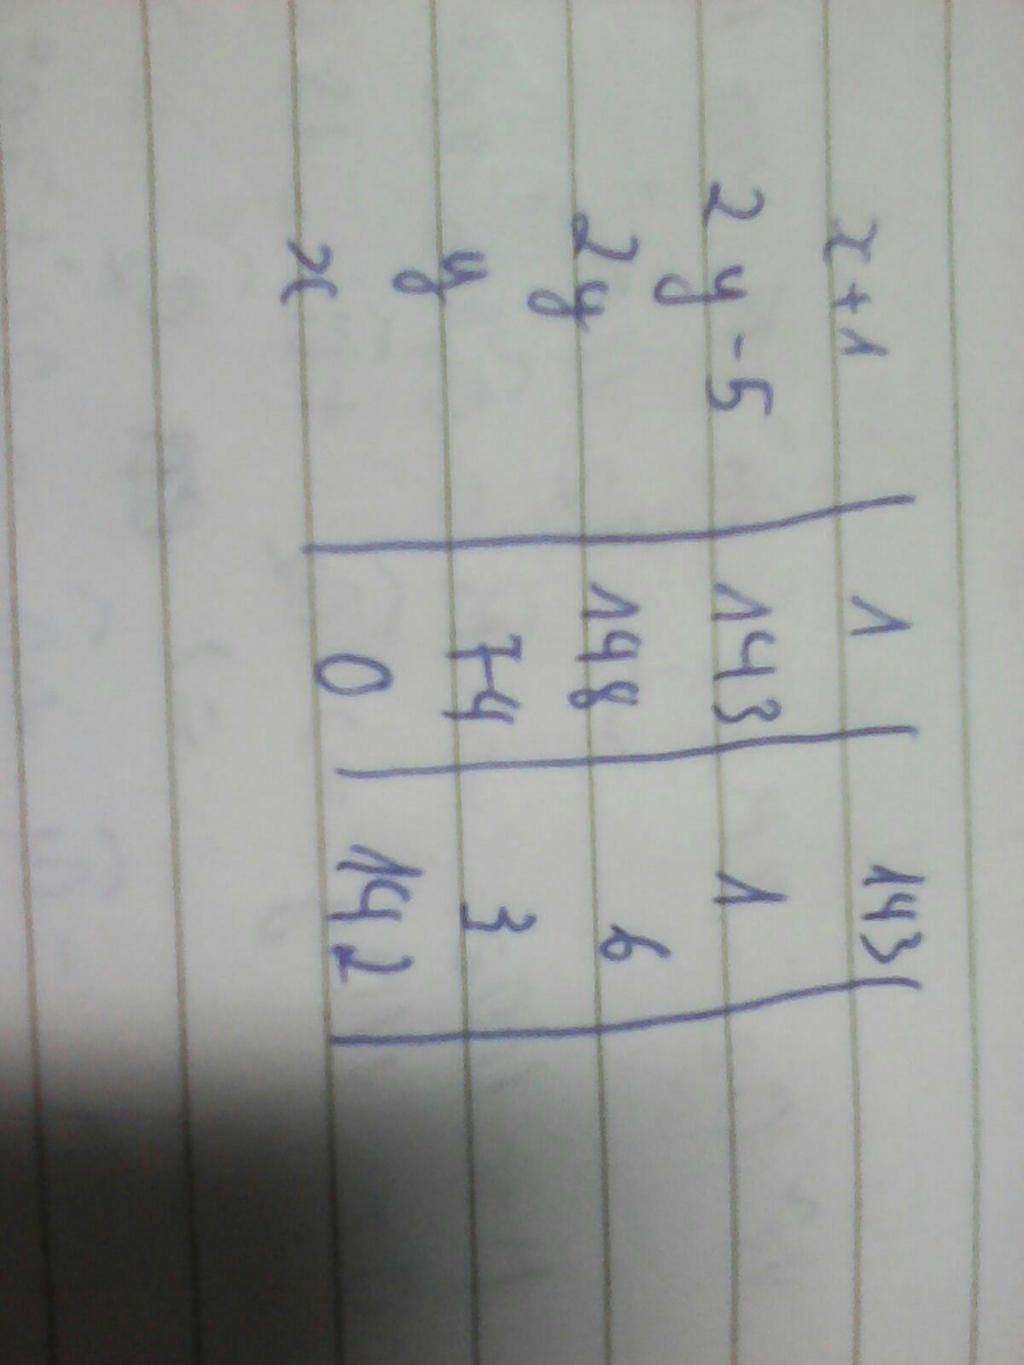 x+1 | 1 | 143 |
2y-5 | 143 | 1 |
2y | 148 | 6 |
y | 74 | 3 |
x | 0 | 142 |